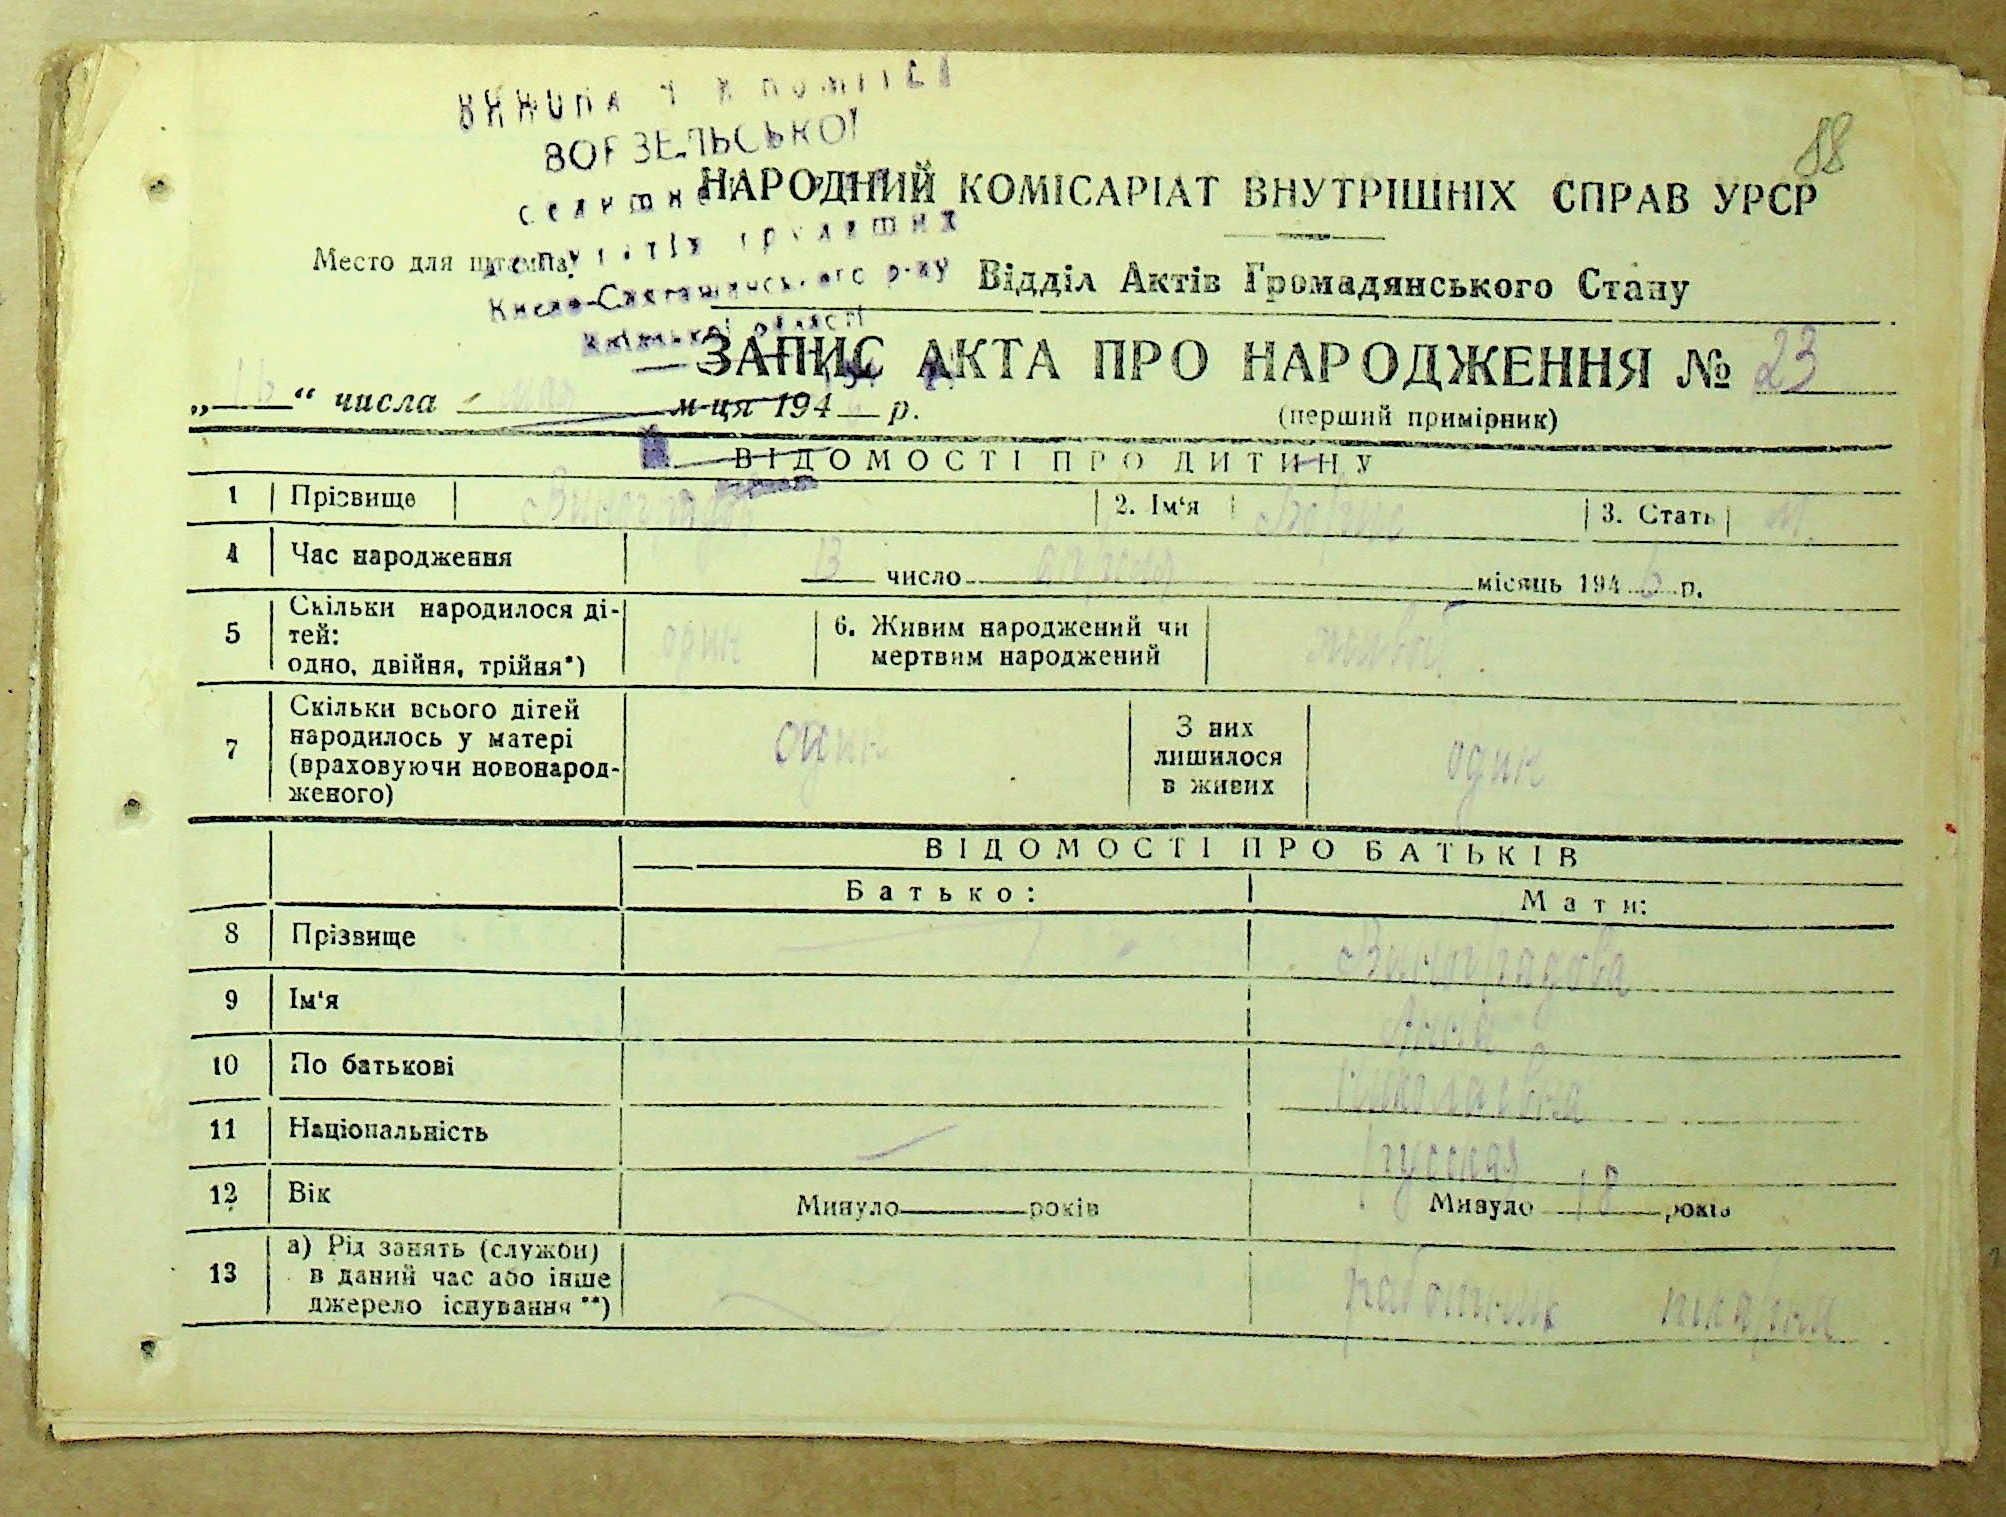 88
ВОРЗЕЛЬСЬКОЇ
НАРОДНИЙ КОМІСАРІАТ ВНУТРІШНІХ СПРАВ УРСР
Место для штампа
Києво-Святошинського р-ну
Київської області
Відділ Актів Громадянського Стану
ЗАПИС АКТА ПРО НАРОДЖЕННЯ № 23
„16“ числа мая м-ця 194 р.
(перший примірник)
ВІДОМОСТІ ПРО ДИТИНУ
1 Прізвище Виноградов 2. Ім‘я Борис 3. Стать м.
4 Час народження 13 число апреля місяць 1946 р.
5 Скільки народилося ді-
тей:
одно, двійня, трійня*) один
6. Живим народжений чи
мертвим народжений живой
7 Скільки всього дітей
народилось у матері
(враховуючи новонарод-
женого) один
З них
лишилося
в живих один
ВІДОМОСТІ ПРО БАТЬКІВ
Батько: Мати:
8 Прізвище Виноградова
9 Ім‘я Анна
10 По батькові Николаевна
11 Національність русская
12 Вік Минуло років Минуло 18 років
13 а) Рід занять (служби)
в даний час або інше
джерело існування **)